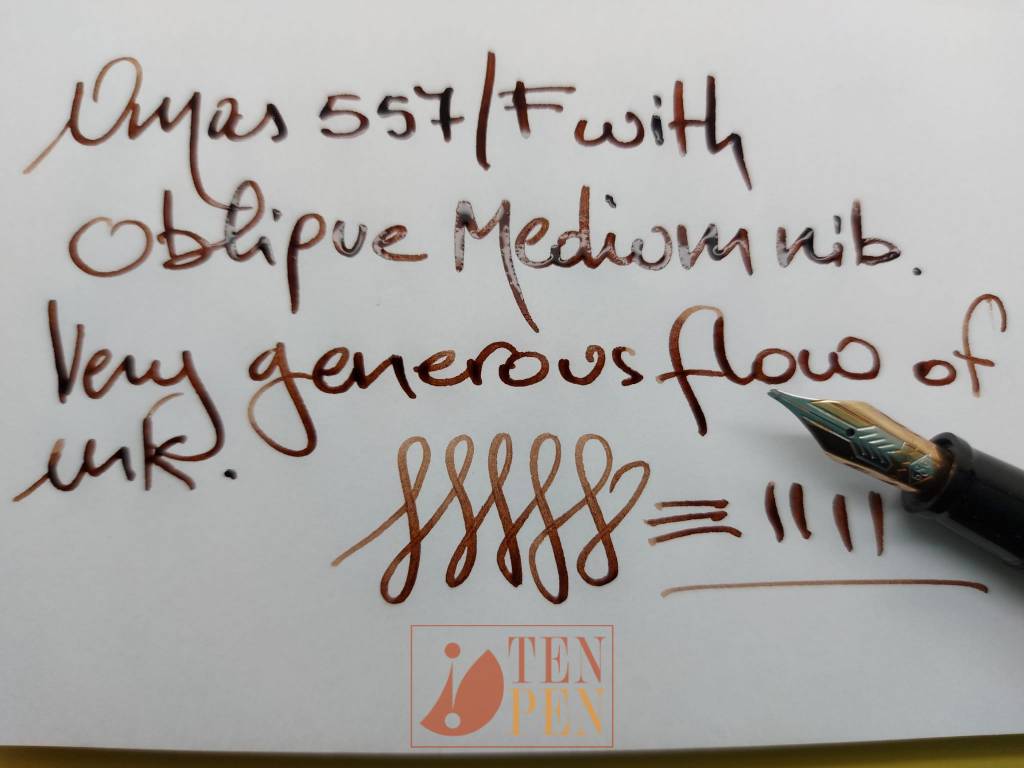 Omas 557/F with
Oblique Medium nib.
Very generous flow of
ink.
TEN
PEN